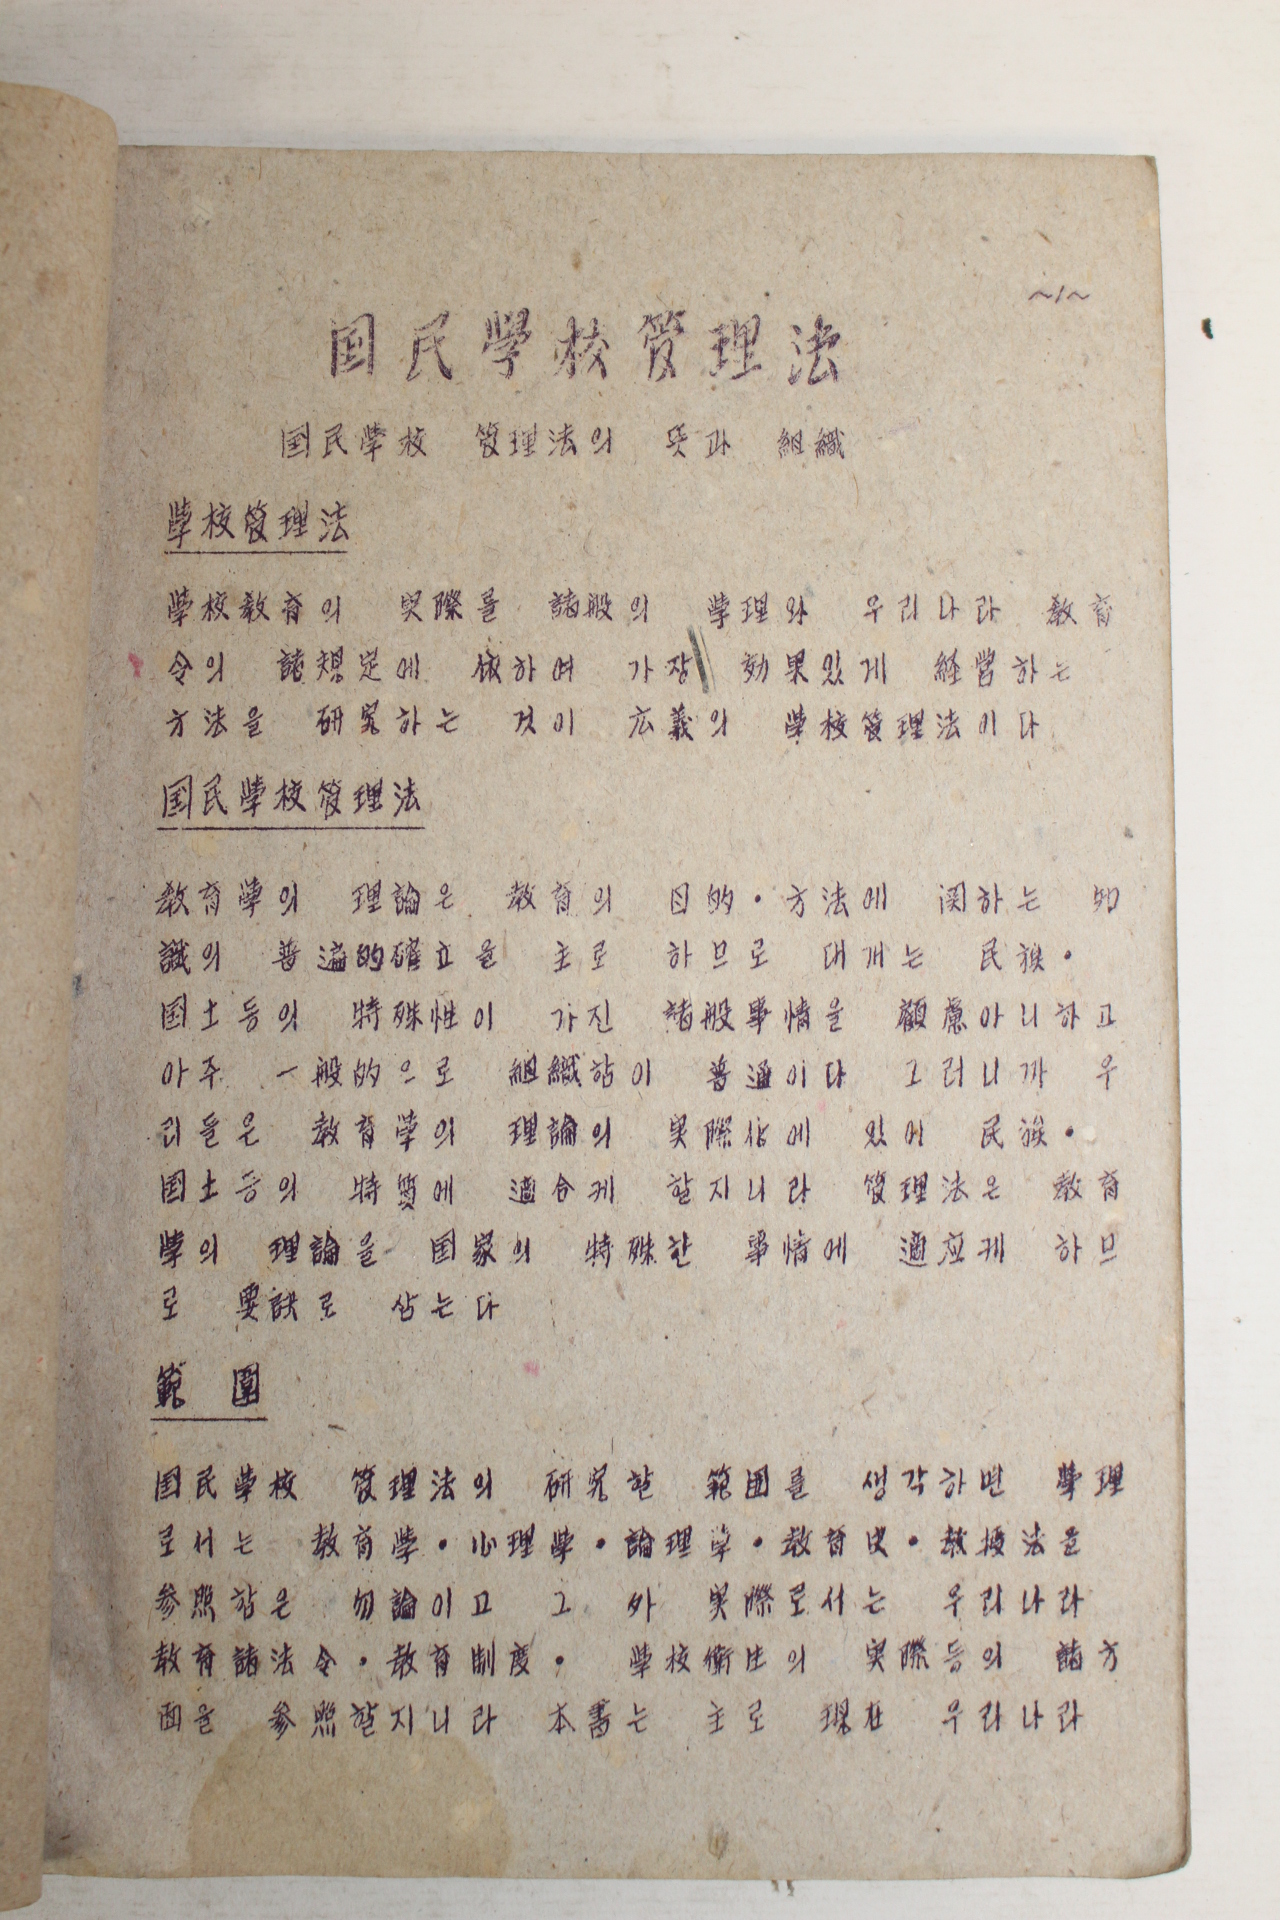 ~1~
国民學校管理法
国民學校 管理法의 뜻과 組織
學校管理法
學校敎育의 実際를 諸般의 學理와 우리나라 敎育
令의 諸規定에 依하여 가장 効果있게 経営하는
方法을 硏究하는 것이 広義의 學校管理法이다
国民學校管理法
敎育學의 理論은 敎育의 目的・方法에 関하는 知
識의 普遍的確立을 主로 하므로 대개는 民族・
国土등의 特殊性이 가진 諸般事情을 顧慮아니하고
아주 一般的으로 組織함이 普通이다 그러니까 우
리들은 敎育學의 理論의 実際상에 있어 民族・
国土등의 特質에 適合케 할지니라 管理法은 敎育
學의 理論을 国家의 特殊한 事情에 適応케 하므
로 要訣로 삼는다
範圍
国民學校 管理法의 硏究할 範囲를 생각하면 學理
로서는 敎育學・心理學・論理学・敎育史・敎授法을
参照함은 勿論이고 그 外 実際로서는 우리나라
敎育諸法令・敎育制度・ 學校衛生의 実際등의 諸方
面을 参照할지니라 本書는 主로 現在 우리나라